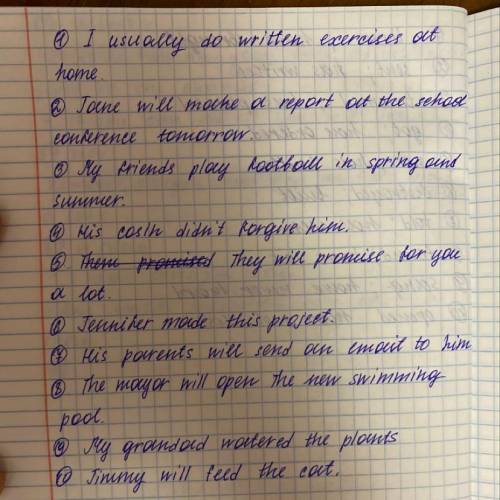 ① I usually do written exercises at
home.
② Jane will make a report at the school
conference tomorrow.
③ My friends play football in spring and
summer.
④ His cosin didn't forgive him.
⑤ Them promised They will promise for you
a lot.
⑥ Jennifer made this project.
⑦ His parents will send an email to him
⑧ The mayor will open the new swimming
pool.
⑨ My grandad watered the plants
⑩ Jimmy will feed the cat.